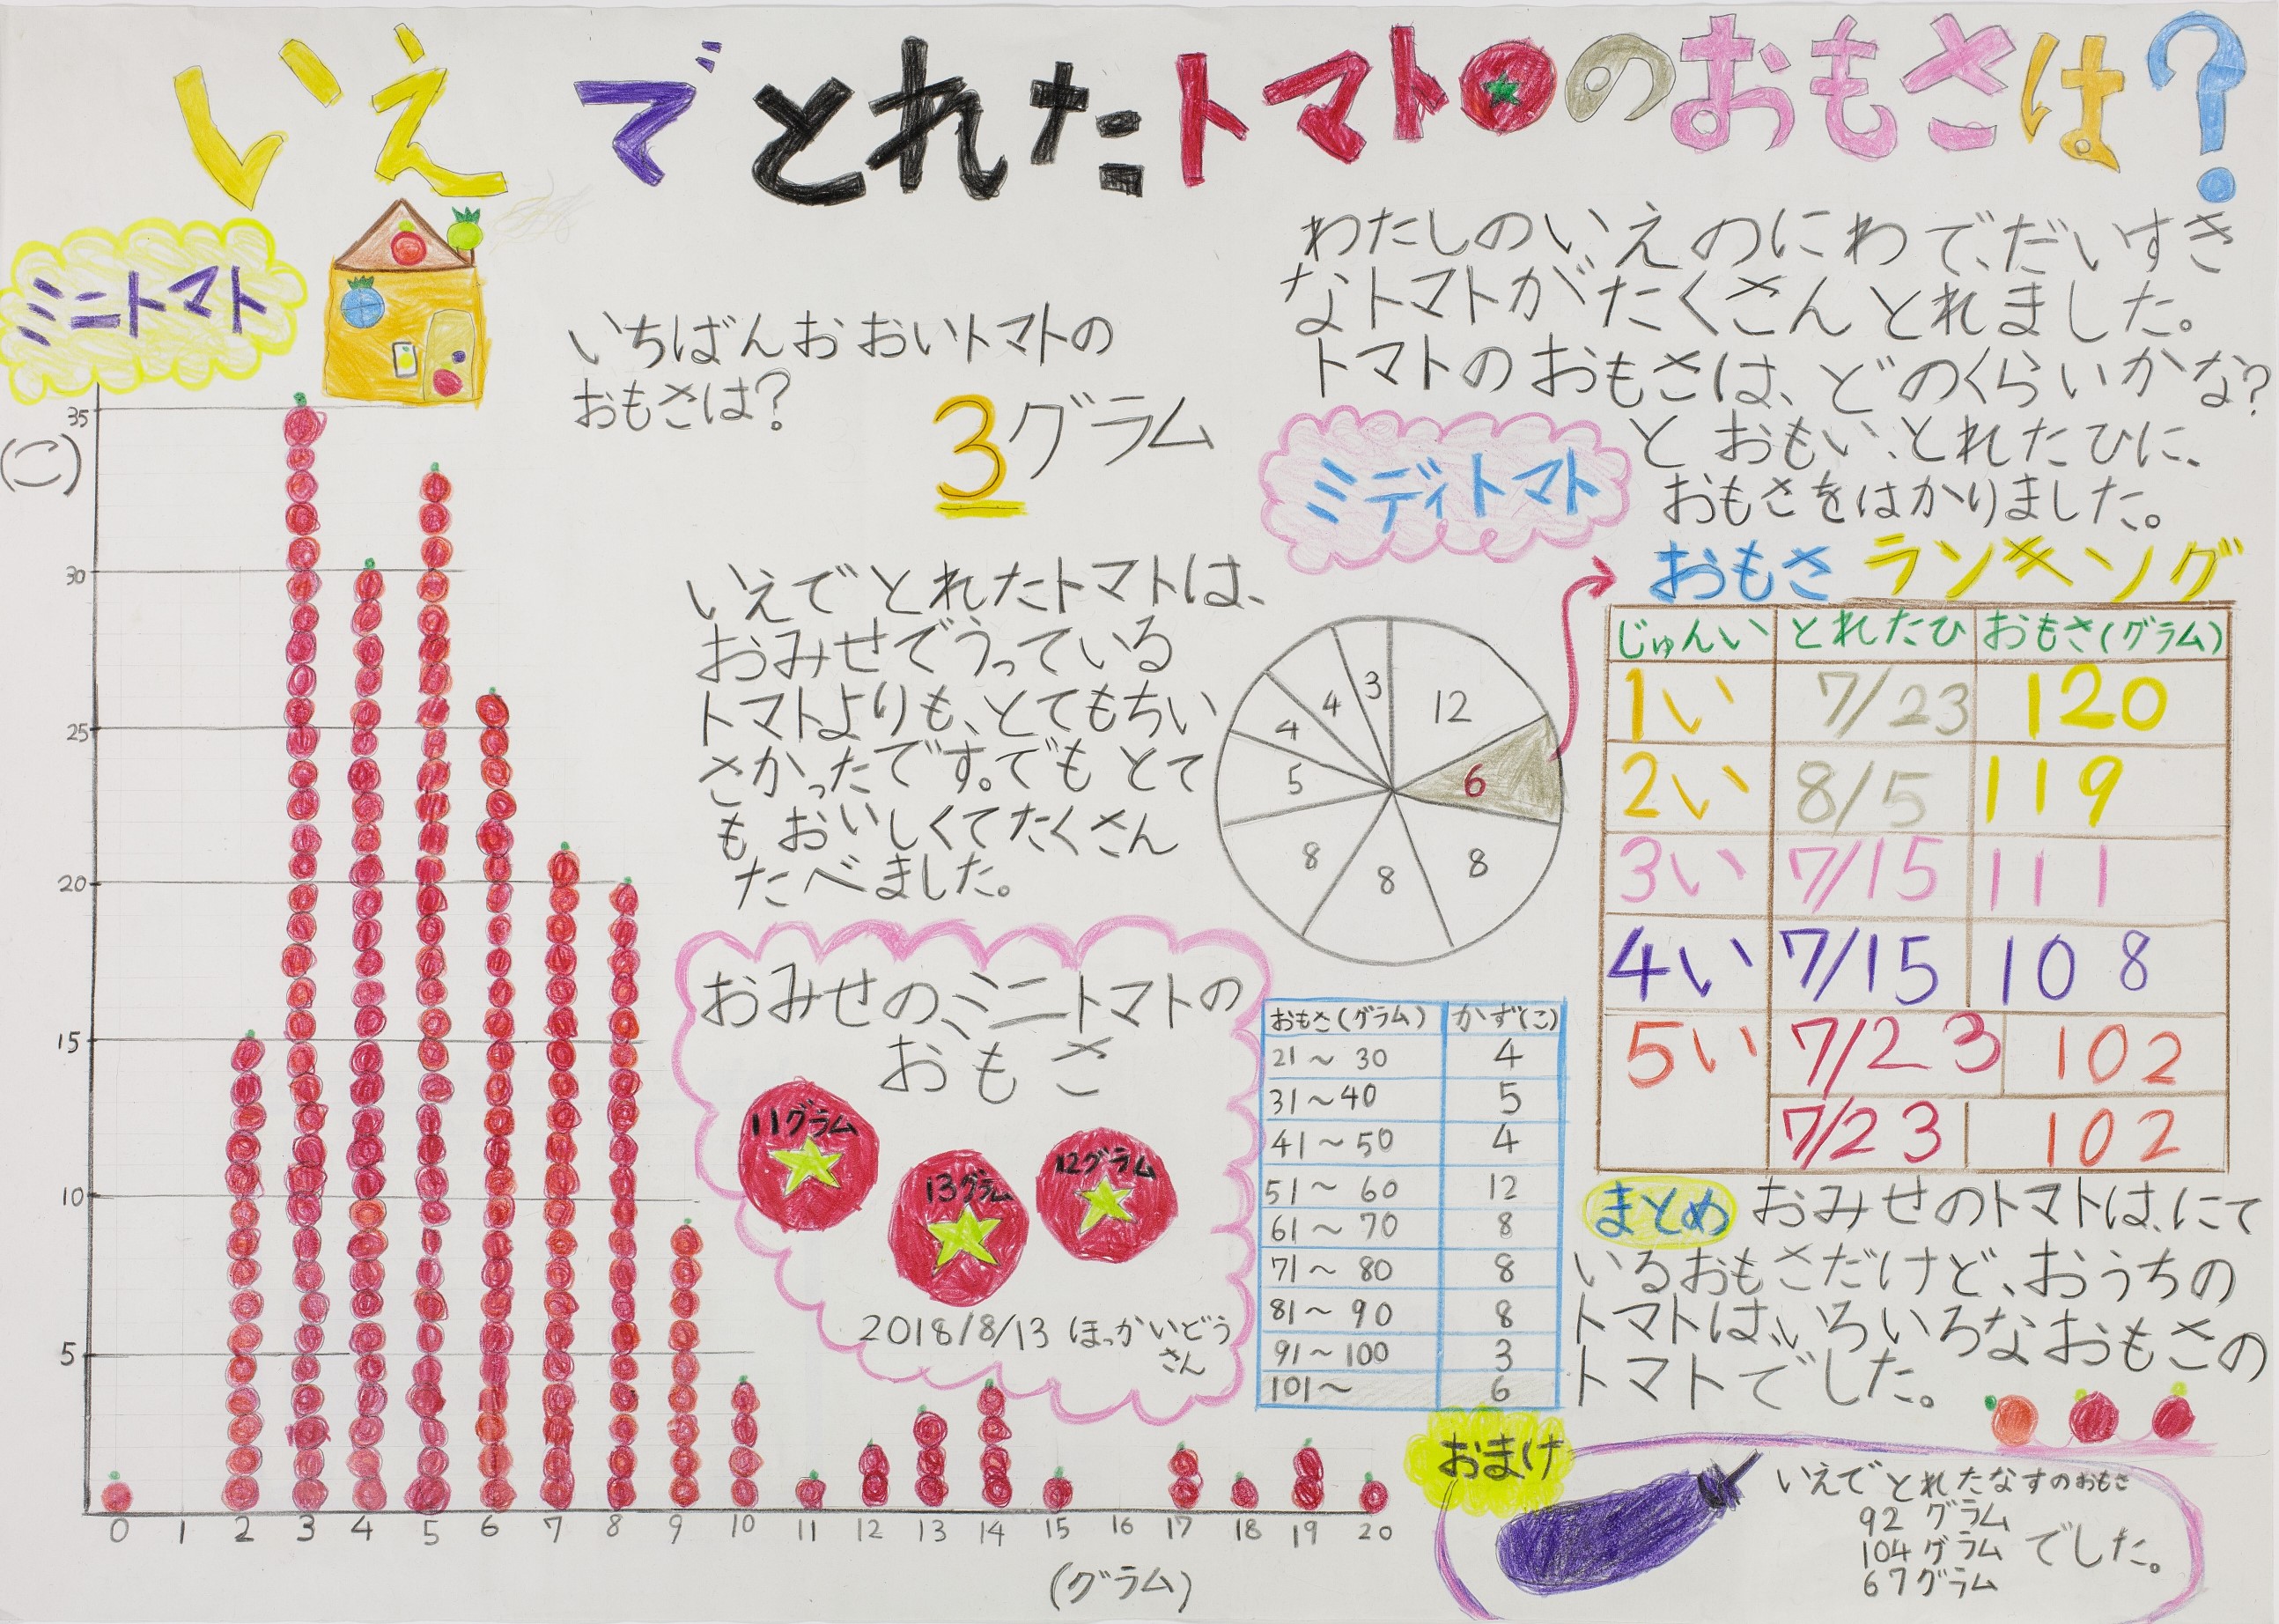 いえでとれたトマトのおもさは?
ミニトマト
わたしのいえのにわで、だいすき
なトマトが、たくさんとれました。
トマトのおもさは、どのくらいかな?
とおもい、とれたひに、
おもさをはかりました。
いちばんおおいトマトの
おもさは?
3グラム
いえでとれたトマトは、
おみせでうっている
トマトよりも、とてもちい
さかったです。でもとて
もおいしくてたくさん
たべました。
(こ)
35
30
25
20
15
10
5
0 1 2 3 4 5 6 7 8 9 10 11 12 13 14 15 16 17 18 19 20
(グラム)
おみせのミニトマトの
おもさ
11グラム
13グラム
12グラム
2018/8/13 ほっかいどう
さん
ミディトマト
12
6
8
8
8
5
4
4
3
おもさ(グラム) かず(こ)
21〜30 4
31〜40 5
41〜50 4
51〜60 12
61〜70 8
71〜80 8
81〜90 8
91〜100 3
101〜 6
おもさランキング
じゅんい とれたひ おもさ(グラム)
1い 7/23 120
2い 8/5 119
3い 7/15 111
4い 7/15 108
5い 7/23 102
7/23 102
まとめ おみせのトマトは、にて
いるおもさだけど、おうちの
トマトは、いろいろなおもさの
トマトでした。
おまけ
いえでとれたなすのおもさ
92グラム
104グラム でした。
67グラム